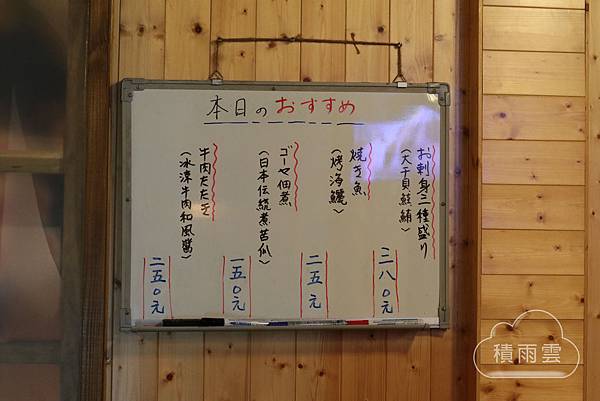 本日のおすすめ
お刺身三種盛り
(大干貝鮭鮪)
三八〇元
焼き魚
(烤海鱺)
二五〇元
ゴーヤ佃煮
(日本伝統煮苦瓜)
一五〇元
牛肉たたき
(冰涼牛肉和風醬)
二五〇元
積雨雲